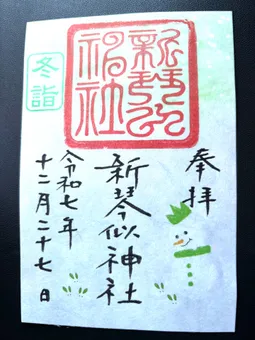 奉拝
新琴似神社
令和七年
十二月二十七日
冬詣
新琴似神社